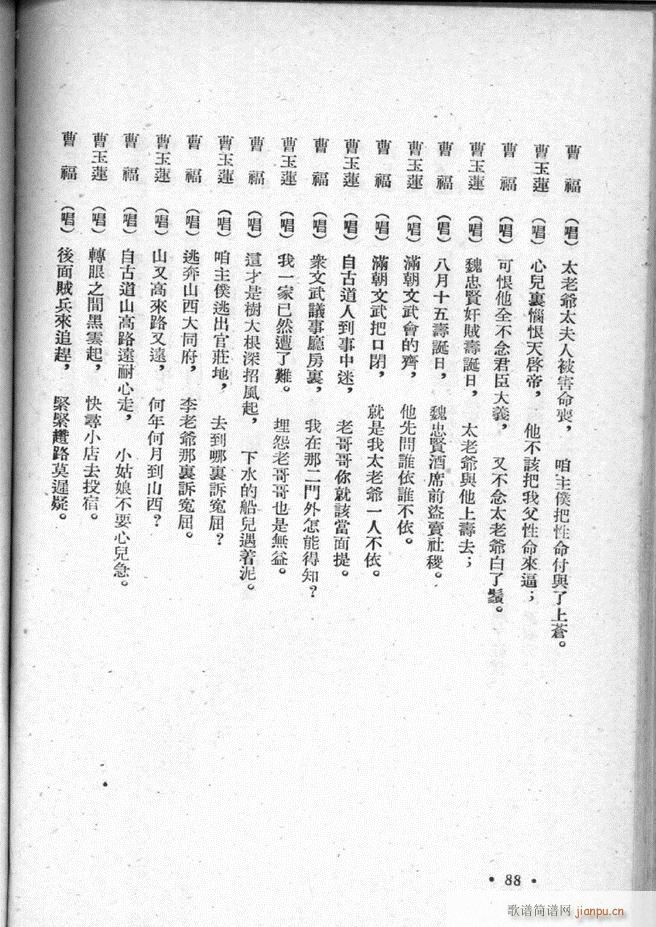 曹　福　（唱）太老爺太夫人被害命喪，　咱主僕把性命付與了上蒼。
曹玉蓮　（唱）心兒裏惱恨天啓帝，　他不該把我父性命來逼；
曹　福　（唱）可恨他全不念君臣大義，　又不念太老爺白了鬚。
曹玉蓮　（唱）魏忠賢奸賊壽誕日，　太老爺與他上壽去；
曹　福　（唱）八月十五壽誕日，　魏忠賢酒席前盜賣社稷。
曹玉蓮　（唱）滿朝文武會的齊，　他先問誰依誰不依。
曹　福　（唱）滿朝文武把口閉，　就是我太老爺一人不依。
曹玉蓮　（唱）自古道人到事中迷，　老哥哥你就該當面提。
曹　福　（唱）衆文武議事廳房裏，　我在那二門外怎能得知？
曹玉蓮　（唱）我一家已然遭了難。　埋怨老哥哥也是無益。
曹　福　（唱）這才是樹大根深招風起，　下水的船兒遇着泥。
曹玉蓮　（唱）咱主僕逃出官莊地，　去到哪裏訴寃屈？
曹　福　（唱）逃奔山西大同府，　李老爺那裏訴寃屈。
曹玉蓮　（唱）山又高來路又遠，　何年何月到山西？
曹　福　（唱）自古道山高路遠耐心走，　小姑娘不要心兒急。
曹玉蓮　（唱）轉眼之間黑雲起，　快尋小店去投宿。
曹　福　（唱）後面賊兵來追趕，　緊緊趲路莫遲疑。
• 88 •
歌谱简谱网 jianpu.cn